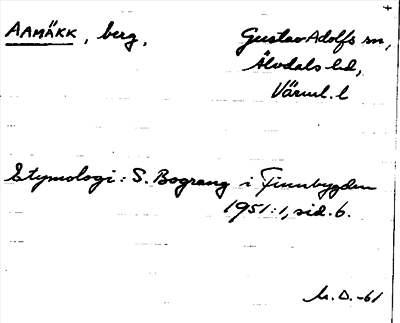 AAMÄKK, berg, Gustav Adolfs sn,
Älvdals hd,
Värml. l
Etymologi: S. Bograng i Finnbygden
1951:1, sid. 6.
M. D. -61